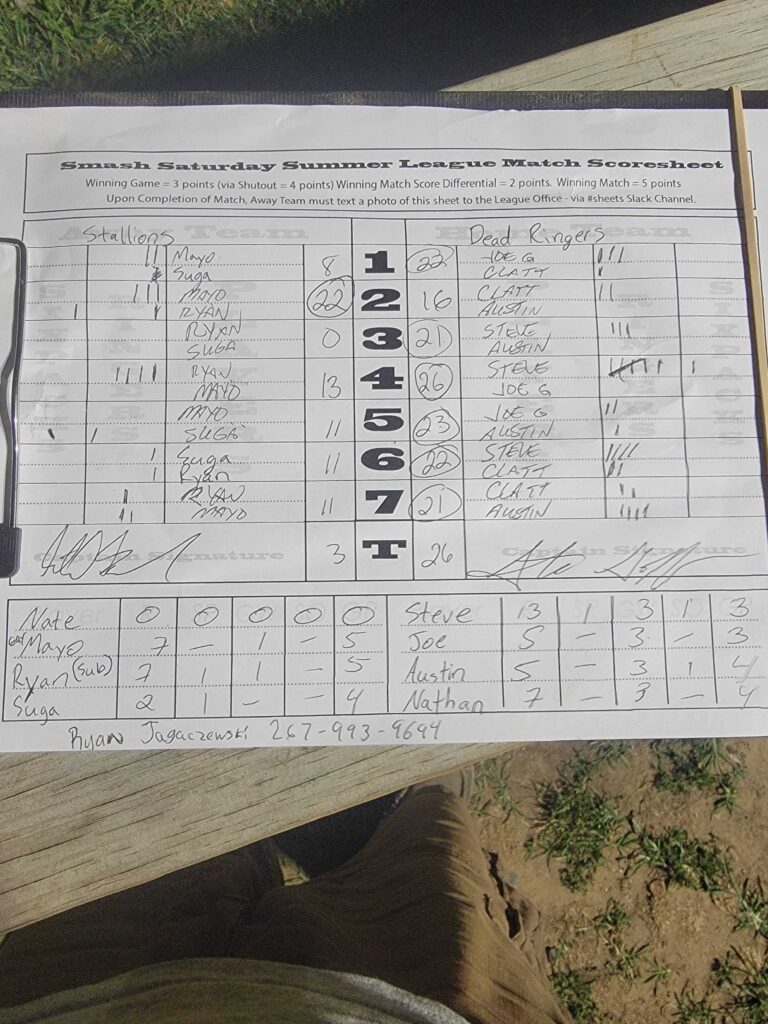 Smash Saturday Summer League Match Scoresheet
Winning Game = 3 points (via Shutout = 4 points) Winning Match Score Differential = 2 points. Winning Match = 5 points
Upon Completion of Match, Away Team must text a photo of this sheet to the League Office - via #sheets Slack Channel.
Stallions Dead Ringers
Mayo 8 1 22 JOE G
Suga CLATT
MAYO 22 2 16 CLATT
RYAN AUSTIN
RYAN 0 3 21 STEVE
SUGA AUSTIN
RYAN 13 4 26 STEVE
MAYO JOE G
MAYO 11 5 23 JOE G
SUGA AUSTIN
Suga 11 6 22 STEVE
Ryan CLATT
RYAN 11 7 21 CLATT
MAYO AUSTIN
Captain Signature 3 T 26 Captain Signature
Nate 0 0 0 0 0 Steve 13 1 3 1 3
Mayo 7 - 1 - 5 Joe 5 - 3 - 3
Ryan (sub) 7 1 1 - 5 Austin 5 - 3 1 4
Suga 2 1 - - 4 Nathan 7 - 3 - 4
Ryan Jagaczewski 267-993-9694